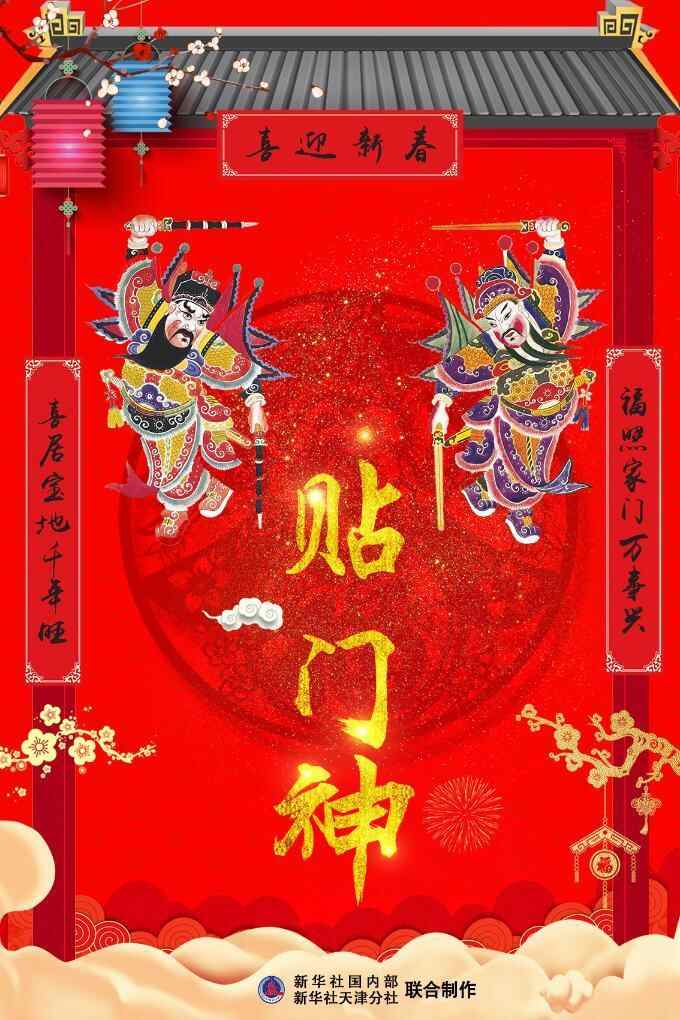 喜迎新春
福照家门万事兴
喜居宝地千年旺
贴
门
神
福
新华社国内部
新华社天津分社
联合制作